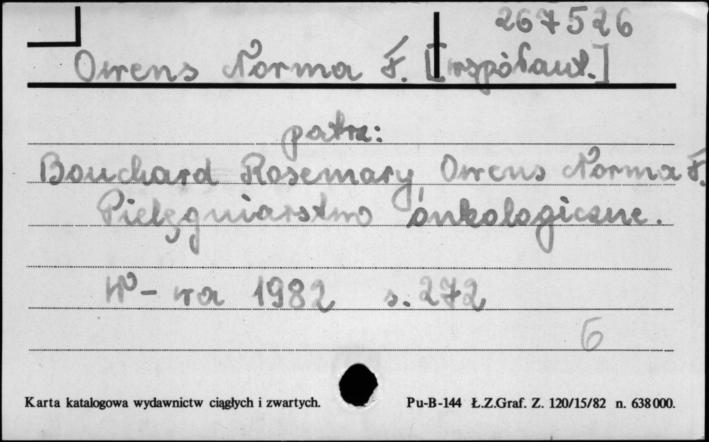 267526
Owens Norma F. [współaut.]
patrz:
Bouchard Rosemary, Owens Norma F.
Pielęgniarstwo onkologiczne.
W-wa 1982 s. 272
6
Karta katalogowa wydawnictw ciągłych i zwartych. Pu-B-144 Ł.Z.Graf. Z. 120/15/82 n. 638000.